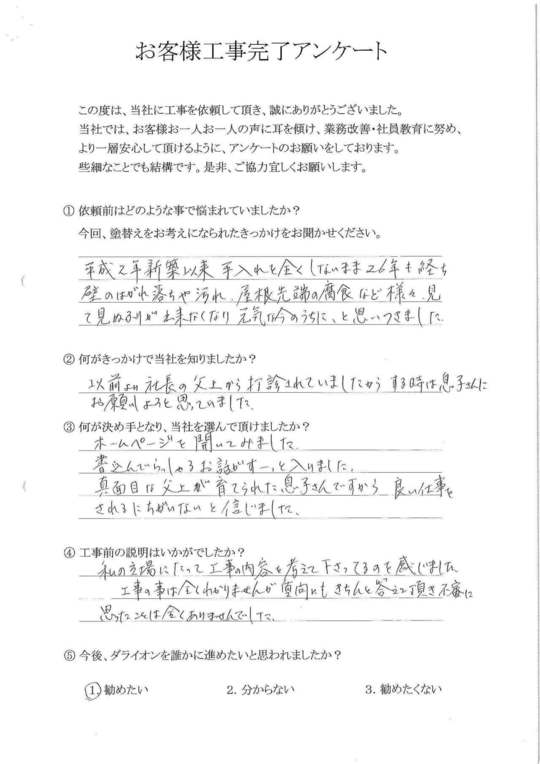 お客様工事完了アンケート
この度は、当社に工事を依頼して頂き、誠にありがとうございました。
当社では、お客様お一人お一人の声に耳を傾け、業務改善・社員教育に努め、
より一層安心して頂けるように、アンケートのお願いをしております。
些細なことでも結構です。是非、ご協力宜しくお願いします。
① 依頼前はどのような事で悩まれていましたか？
今回、塗替えをお考えになられたきっかけをお聞かせください。
平成2年新築以来 手入れを全くしないまま26年も経ち
壁のはがれ落ちや汚れ、屋根先端の腐食など様々、見
て見ぬふりが出来なくなり 元気な今のうちに、と思いつきました
② 何がきっかけで当社を知りましたか？
以前より社長の父上から打診されていましたから する時は息子さんに
お願いしようと思っていました。
③ 何が決め手となり、当社を選んで頂けましたか？
ホームページを開いてみました。
書込んでらっしゃるお話がすーっと入りました。
真面目な父上が育てられた息子さんですから 良い仕事を
されるにちがいないと信じました。
④ 工事前の説明はいかがでしたか？
私の立場にたって工事の内容を考えて下さってるのを感じました
工事の事は全くわかりませんが質問にもきちんと答えて頂き不審に
思ったことは全くありませんでした。
⑤ 今後、ダライオンを誰かに進めたいと思われましたか？
1. 勧めたい 2. 分からない 3. 勧めたくない